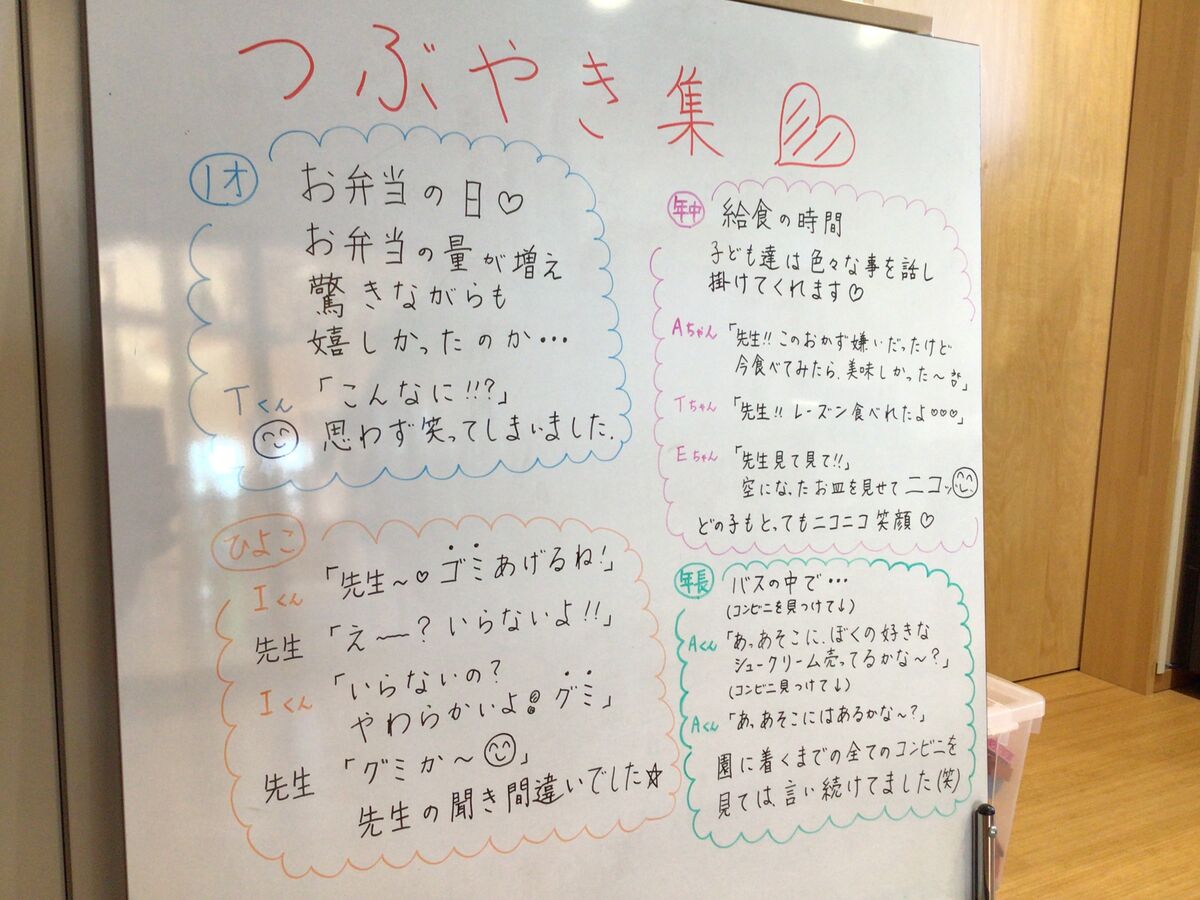 つぶやき集
1才
お弁当の日♡
お弁当の量が増え
驚きながらも
嬉しかったのか…
Tくん「こんなに!!?」
思わず笑ってしまいました.
ひよこ
Iくん「先生~♡ゴミあげるね!」
先生「え~~?いらないよ!!」
Iくん「いらないの?
やわらかいよ グミ」
先生「グミか~
先生の聞き間違いでした☆
年中
給食の時間
子ども達は色々な事を話し
掛けてくれます♡
Aちゃん「先生!!このおかず嫌いだったけど
今食べてみたら、美味しかった~」
Tちゃん「先生!!レーズン食べれたよ♡♡♡」
Eちゃん「先生見て見て!!」
空になったお皿を見せてニコッ
どの子もとってもニコニコ笑顔♡
年長
バスの中で…
(コンビニを見つけて↓)
Aくん「あっ、あそこに、ぼくの好きな
シュークリーム売ってるかな~?」
(コンビニ見つけて↓)
Aくん「あっ、あそこにはあるかな~?」
園に着くまでの全てのコンビニを
見ては、言い続けてました(笑)